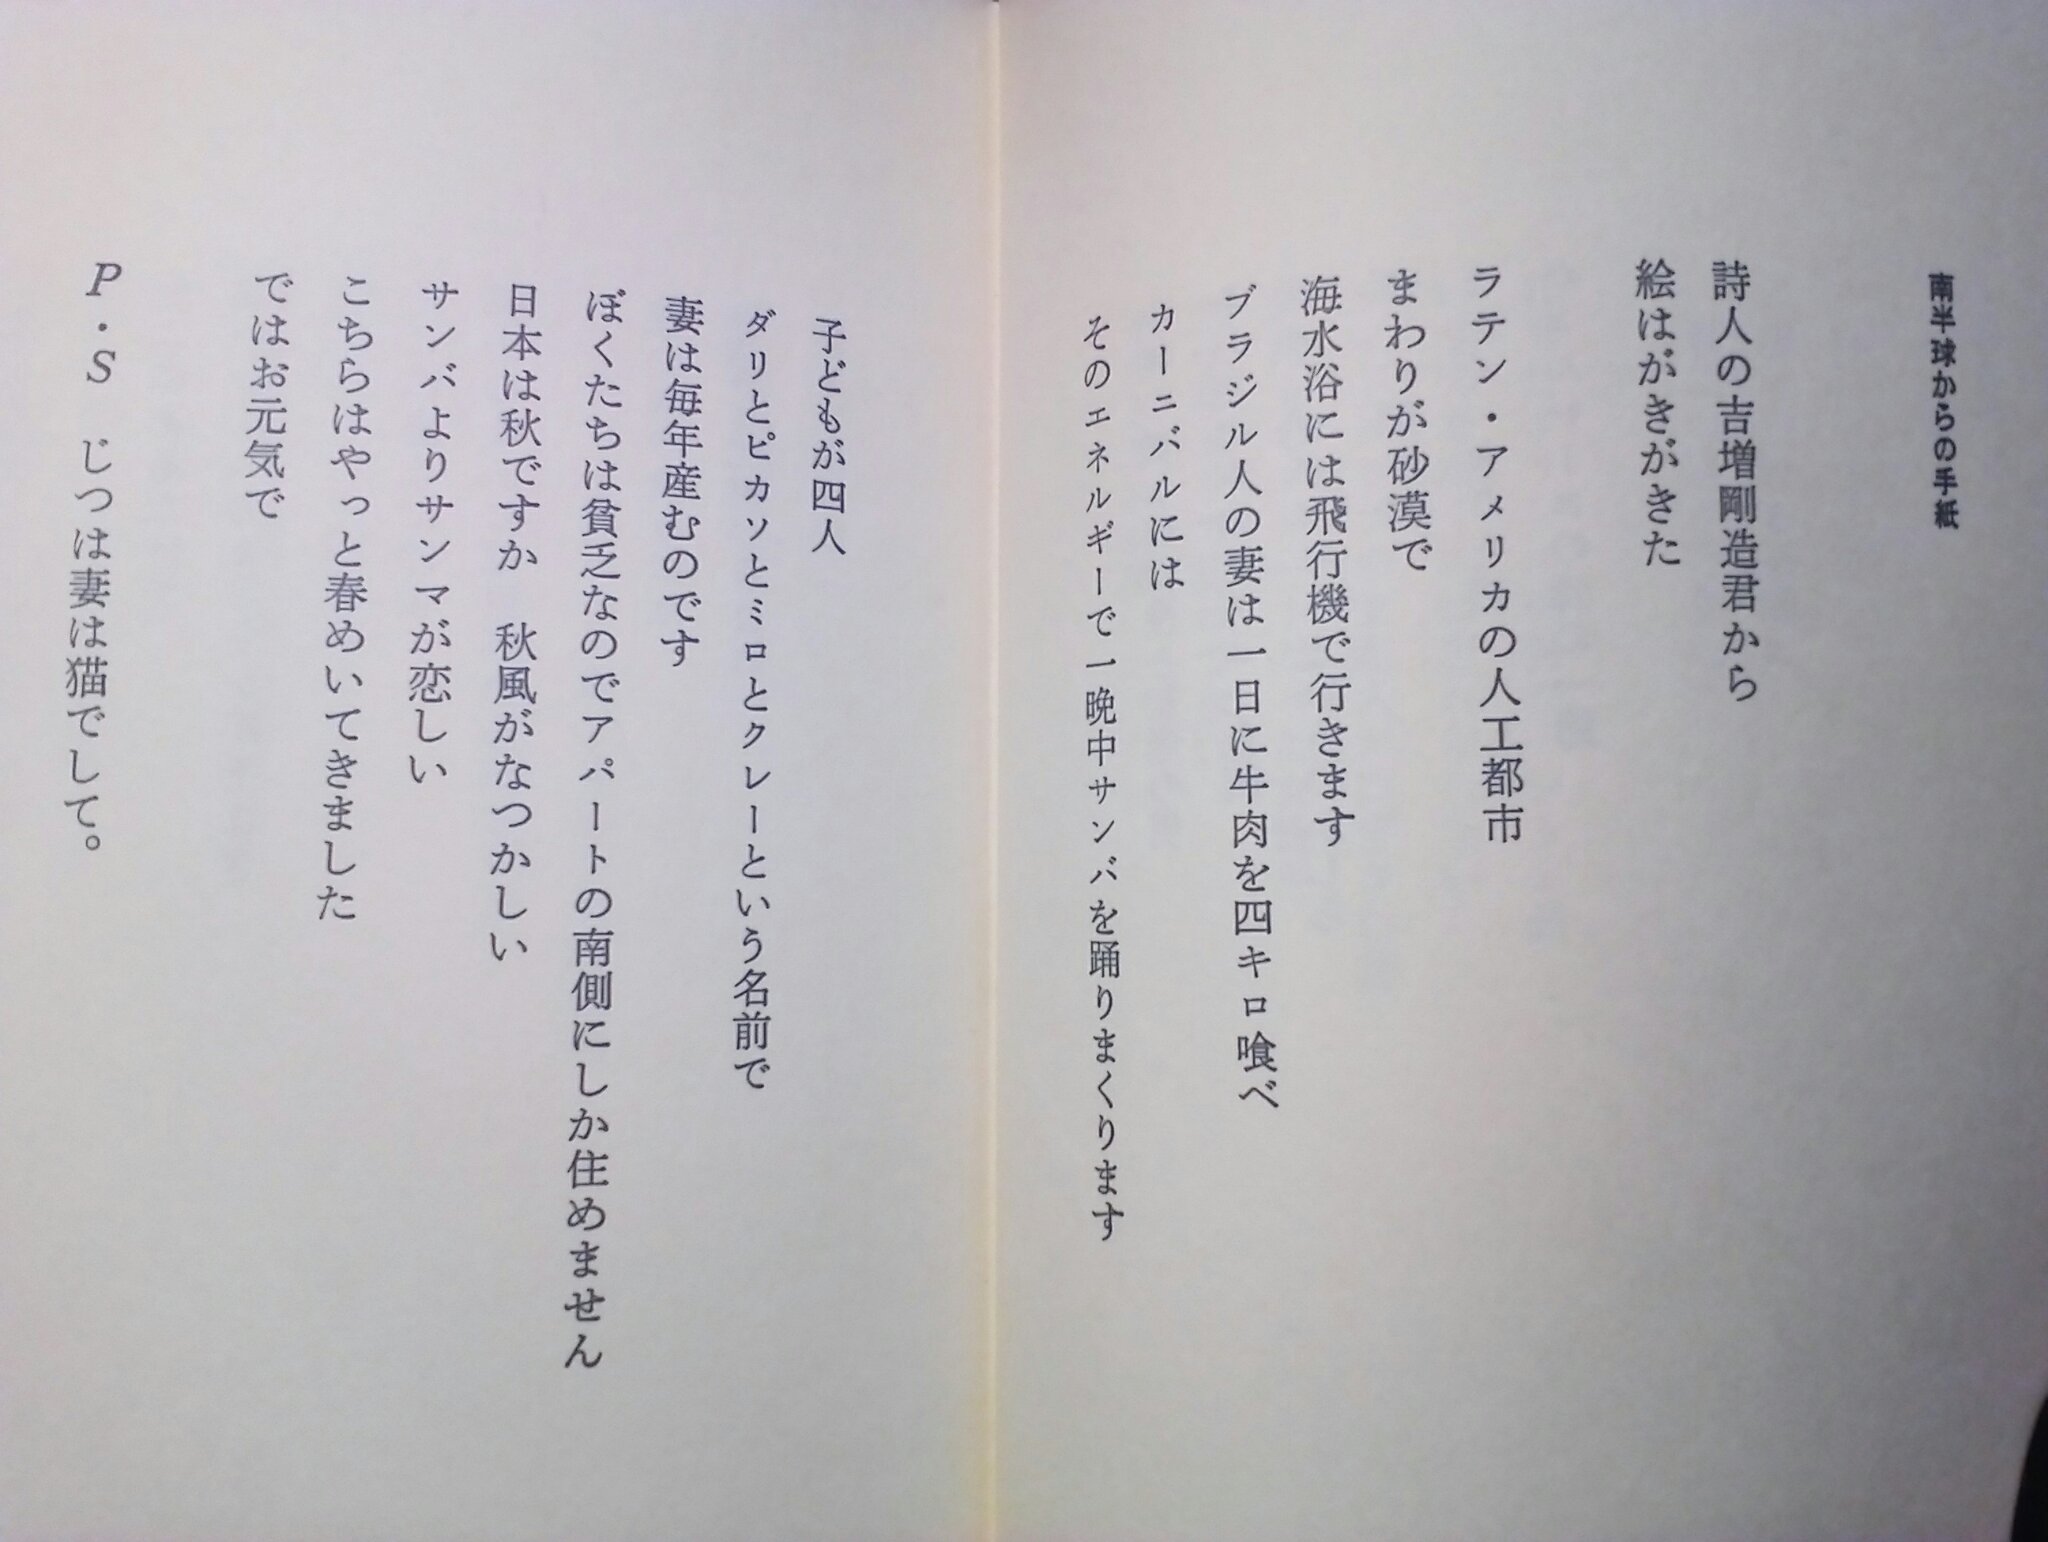 南半球からの手紙
詩人の吉増剛造君から
絵はがきがきた
ラテン・アメリカの人工都市
まわりが砂漠で
海水浴には飛行機で行きます
ブラジル人の妻は一日に牛肉を四キロ喰べ
カーニバルには
そのエネルギーで一晩中サンバを踊りまくります
子どもが四人
ダリとピカソとミロとクレーという名前で
妻は毎年産むのです
ぼくたちは貧乏なのでアパートの南側にしか住めません
日本は秋ですか　秋風がなつかしい
サンバよりサンマが恋しい
こちらはやっと春めいてきました
ではお元気で
P・S　じつは妻は猫でして。